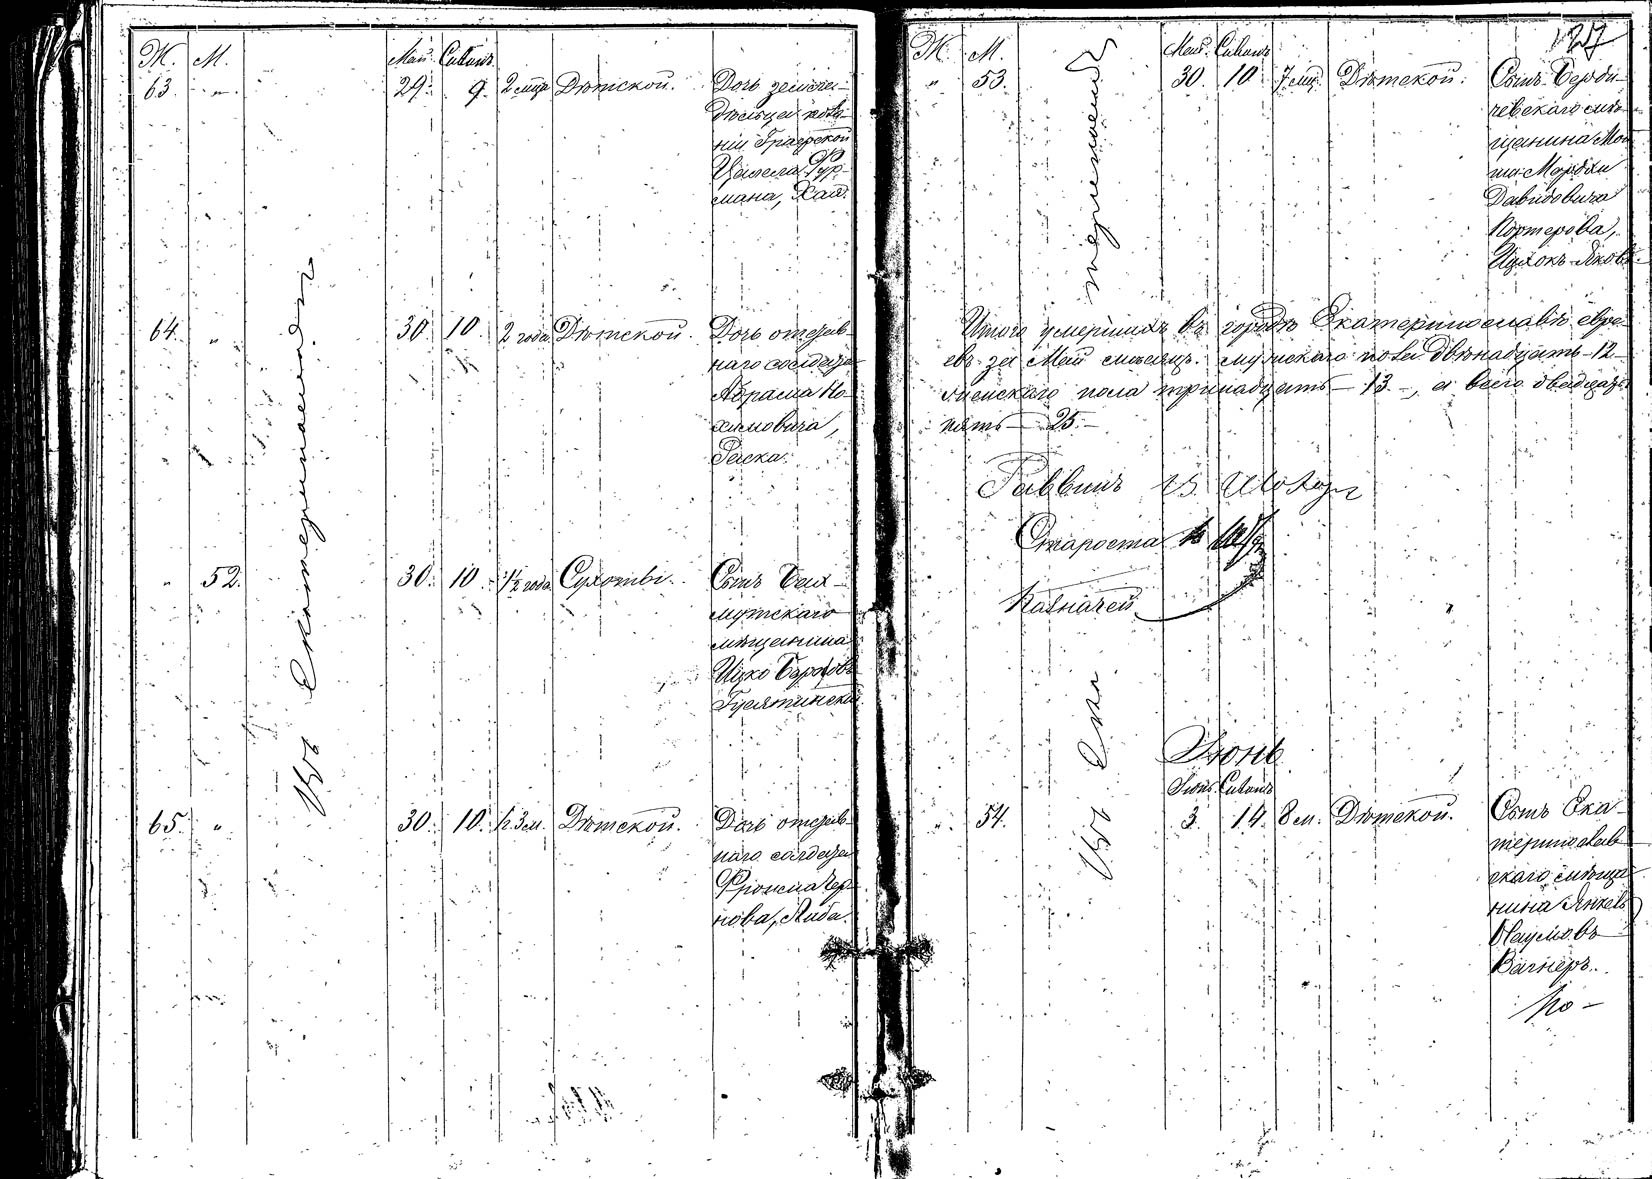 Ж. М. Май. Сиванъ
63. " 29. 9. 2 мца Дѣтской. Дочь земле-
дѣльца коло-
ніи Графской
Цалела Фур-
мана, Хая.
Въ Екатеринославѣ
64. " 30 10 2 года Дѣтской. Дочь отстав-
наго солдата
Абрама Но-
химовича,
Раска.
" 52. 30. 10 1/2 года Сухоты. Сынъ Бах-
мутскаго
мѣщанина
Ицко
65. " 30. 10. 3 м. Дѣтской. Дочь отстав-
наго солдата
Чер-
нова, Либа.
127
Ж. М. Май. Сиванъ
" 53. 30. 10 7 мц. Дѣтской. Сынъ Берди-
чевскаго мѣ-
щанина Мо-
Давидовича
Портерова,
Ицхокъ-Яковъ
Въ Екатеринославѣ
Итого умершихъ въ городѣ Екатеринославѣ евре-
евъ за Май мѣсяцъ. мужскаго пола двѣнадцать - 12 -
женскаго пола тринадцать - 13 -, а всего двадцать
пять - 25 -
Раввинъ
Староста
Казначей
Іюнь
Іюнь. Сиванъ
" 54. 3. 14. 8 м. Дѣтской. Сынъ Ека-
теринослав-
скаго мѣща-
нина Янкель
Наумовъ
Вагнеръ.
Но-